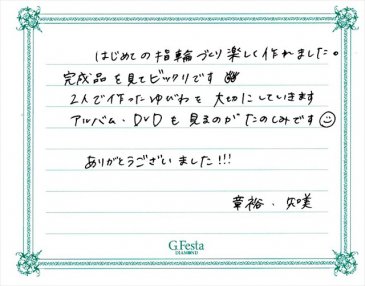 はじめての指輪づくり楽しく作れました。
完成品を見てビックリです
2人で作ったゆびわを大切にしていきます
アルバム・DVDも見るのがたのしみです
ありがとうございました!!!
章裕・知美
G.Festa
DIAMOND